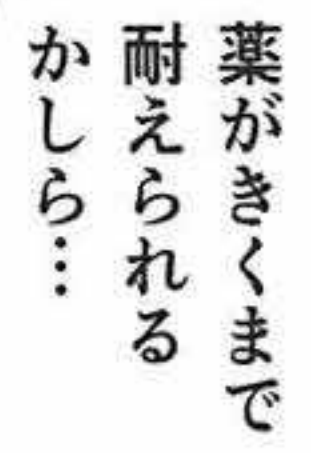 薬がきくまで
耐えられる
かしら…